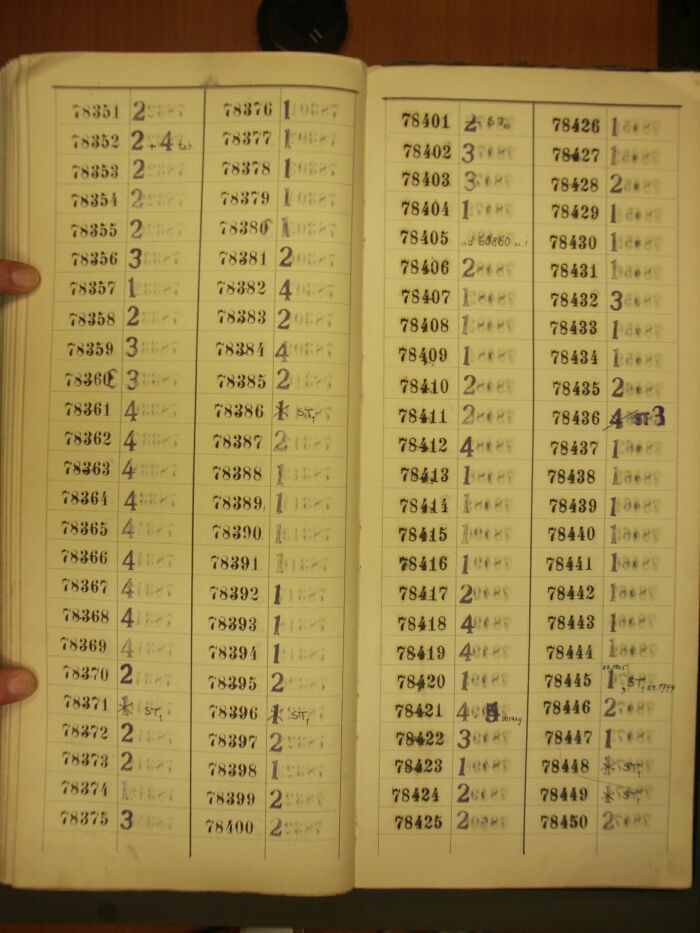 78351 2
78352 2 + 4 tab.
78353 2
78354 2
78355 2
78356 3
78357 1
78358 2
78359 3
78360 3
78361 4
78362 4
78363 4
78364 4
78365 4
78366 4
78367 4
78368 4
78369 4
78370 2
78371 1 ST,
78372 2
78373 2
78374 1
78375 3
78376 1
78377 1
78378 1
78379 1
78380 1
78381 2
78382 4
78383 2
78384 4
78385 2
78386 1 ST,
78387 2
78388 1
78389 1
78390 1
78391 1
78392 1
78393 1
78394 1
78395 2
78396 1 ST,
78397 2
78398 1
78399 2
78400 2
78401 2 ST,
78402 3
78403 3
78404 1
78405 ad 60860
78406 2
78407 1
78408 1
78409 1
78410 2
78411 2
78412 4
78413 1
78414 1
78415 1
78416 1
78417 2
78418 4
78419 4
78420 1
78421 4
78422 3
78423 1
78424 2
78425 2
78426 1
78427 1
78428 2
78429 1
78430 1
78431 1
78432 3
78433 1
78434 1
78435 2
78436 4 ST 3
78437 1
78438 1
78439 1
78440 1
78441 1
78442 1
78443 1
78444 1
78445 1, ST,
78446 2
78447 1
78448 1 ST,
78449 1 ST,
78450 2